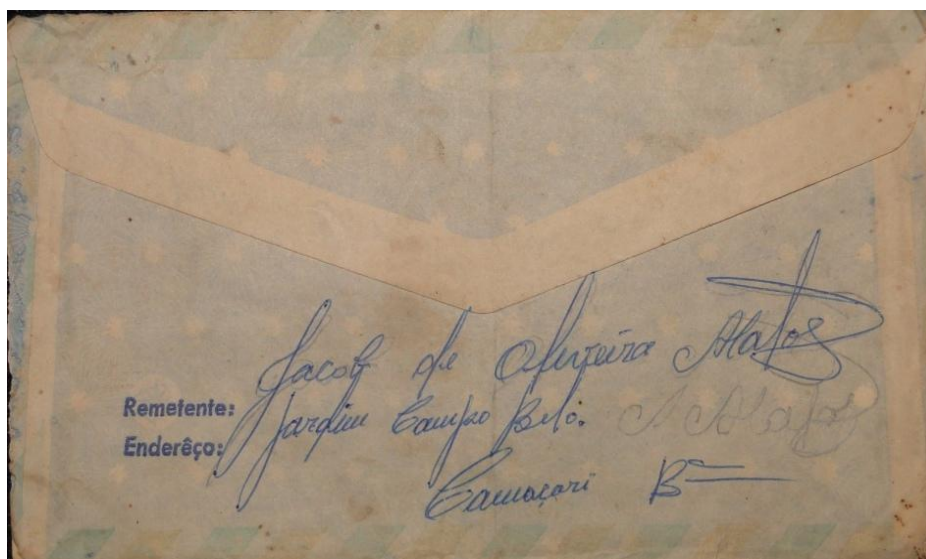 Remetente: Jacob de Oliveira Matos
Enderêço: Jardim Campo Belo.
Camaçari Bª